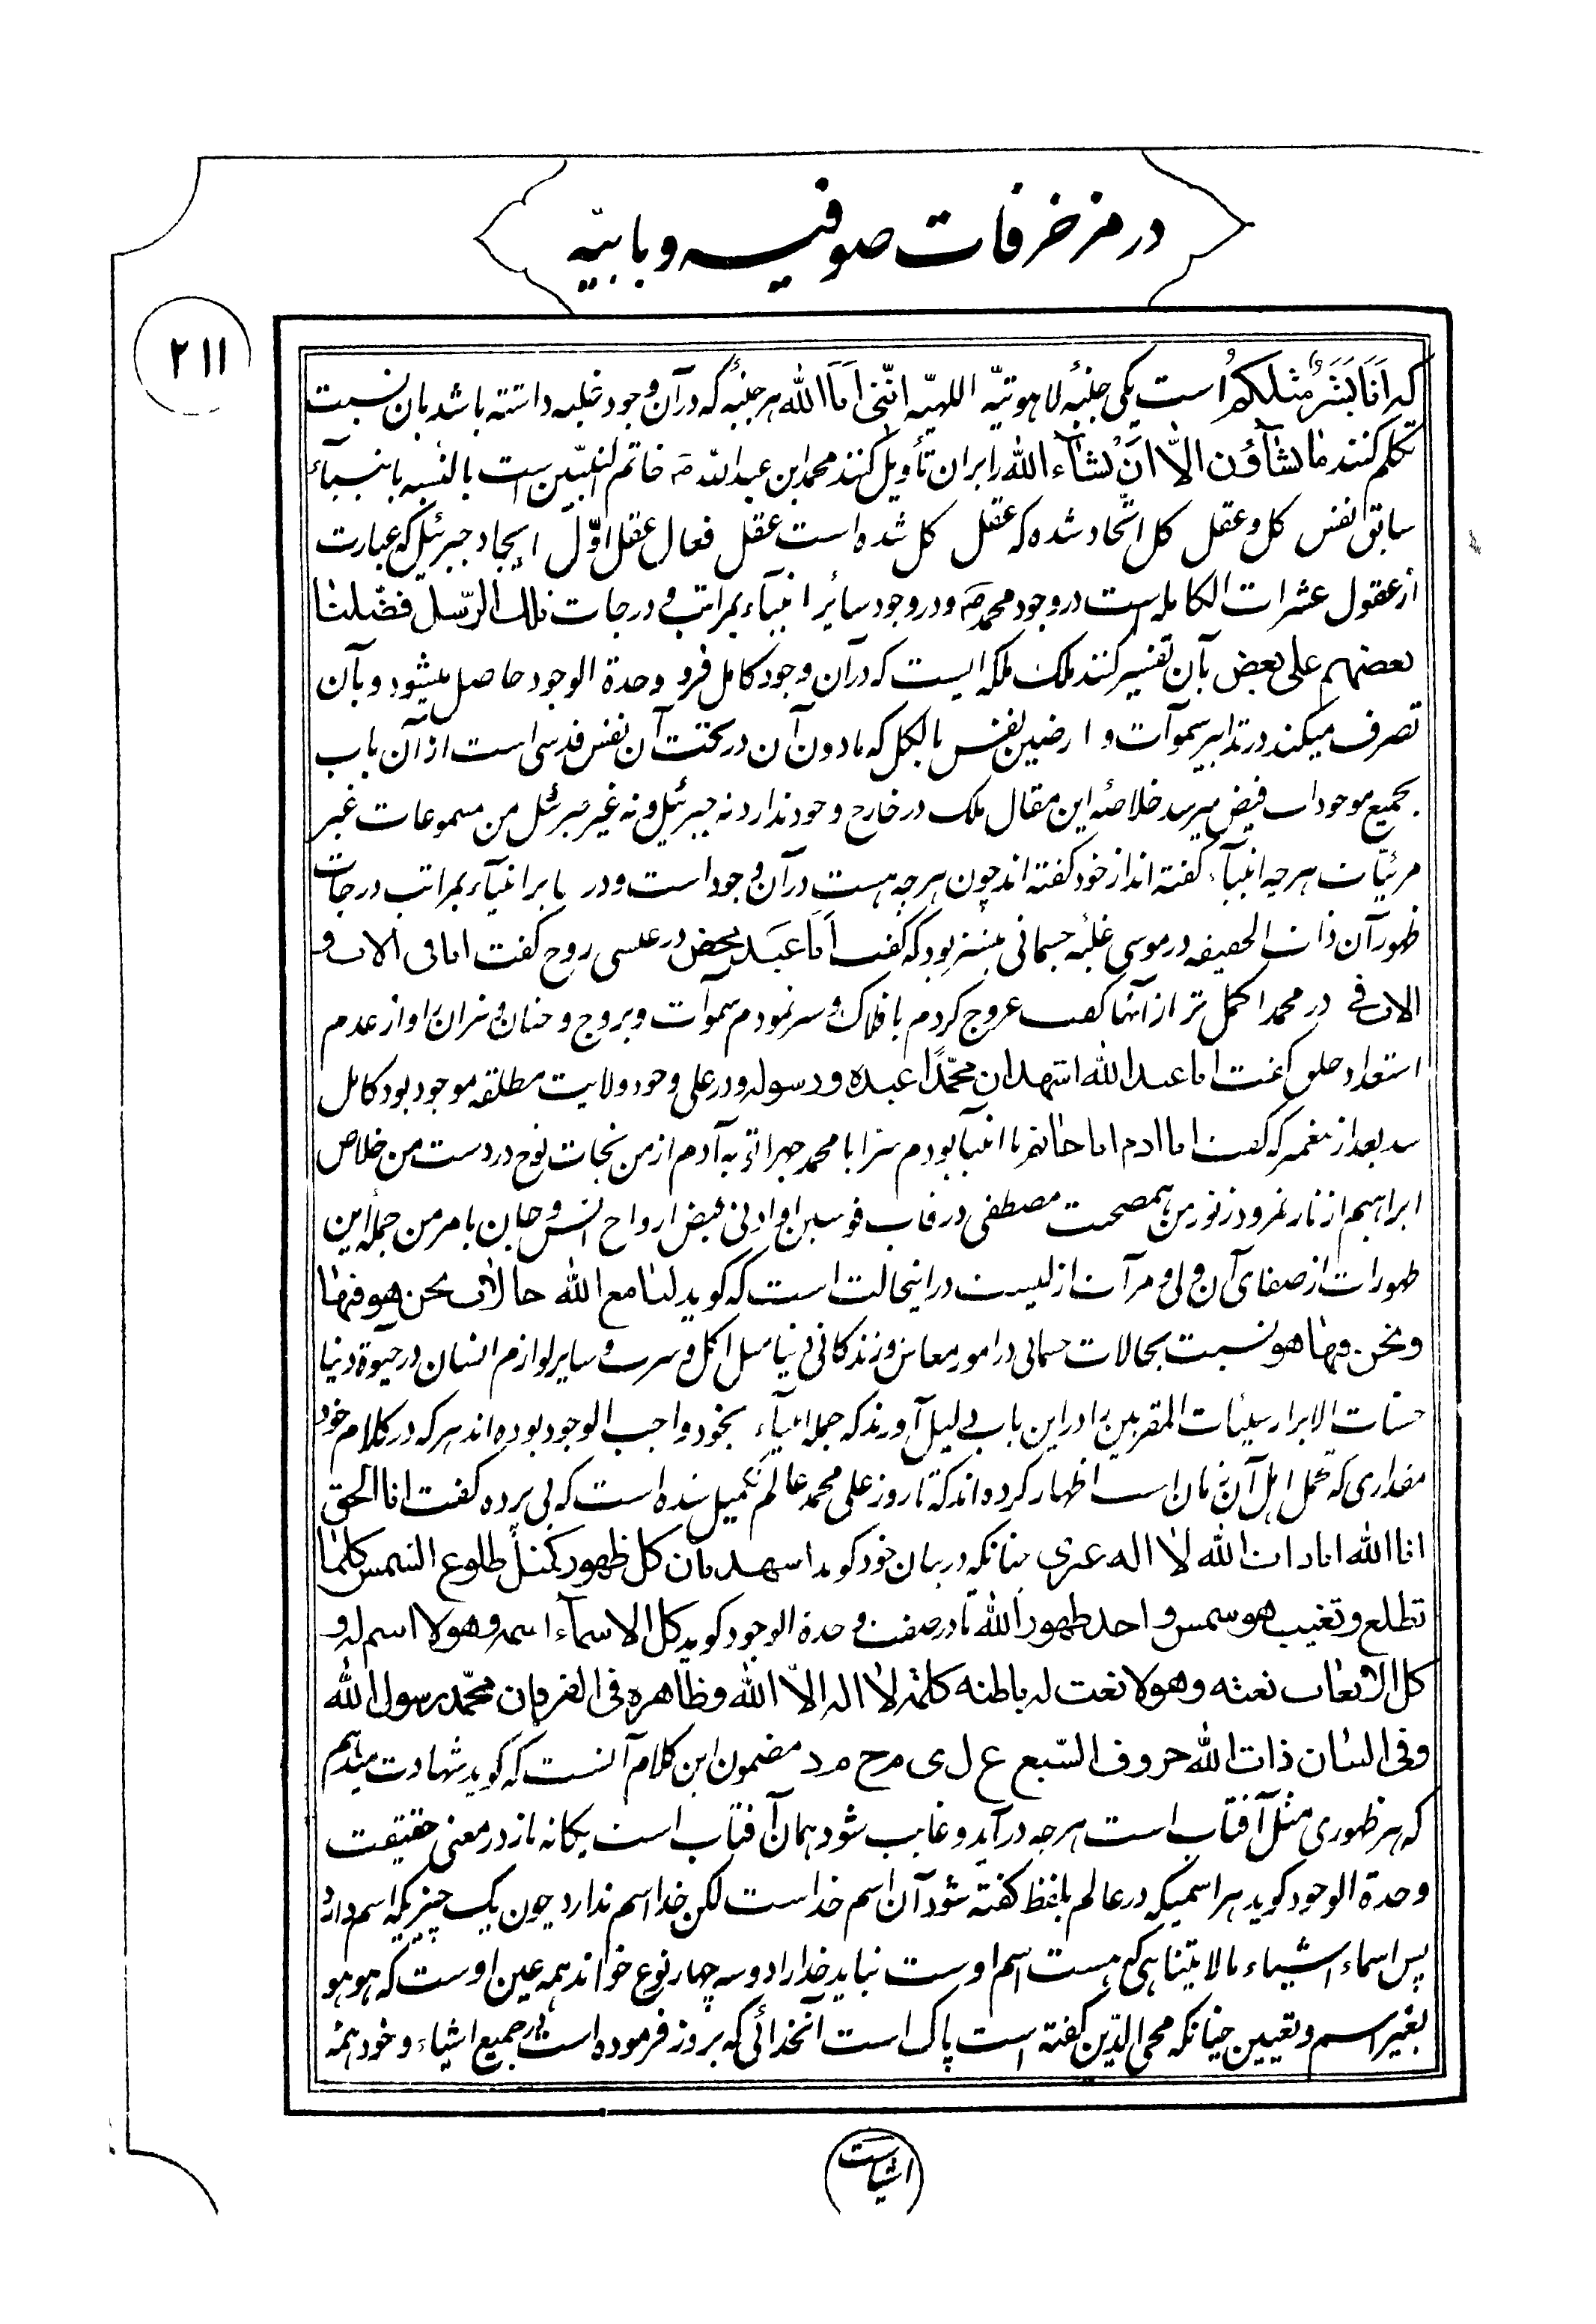 در مزخرفات صوفیه و بابیّه
۲۱۱
که اَنَا بَشَرٌ مثلکم است یکی جنبهٔ لاهوتیّه اللهیّه انّنی اَنَا الله هر جنبهٔ که در آن وجود غلبه داشته باشد بان نسبت
تکلم کنند ما تشآؤن الّا انْ یشآء الله را بر ان تأویل کنند محمد ابن عبد الله ص خاتم النبیّین است بالنسبه بانبیآء
سابق نفس کل و عقل کل اتّحاد شده که عقل کل شده است عقل فعال عقل اوّل ایجاد جبرئیل که عبارت
از عقول عشرات الکامله است در وجود محمد ص و در وجود سائر انبیآء بمراتب و درجات تلک الرّسل فضّلنا
بعضهم علی بعض بآن تفسیر کنند ملک ملکه ایست که در آن وجود کامل فرو وحدة الوجود حاصل میشود و بآن
تصرف میکند در تدابیر سموآت و ارضین نفس بالکل که مادون آن در تحت آن نفس قدسی است از آن باب
بجمیع موجودات فیض میرسد خلاصهٔ این مقال ملک در خارج وجود ندارد نه جبرئیل و نه غیر جبرئیل من مسموعات غیر
مرئیّات هر چه انبیآء گفته اند از خود گفته اند چون هر چه هست در آن وجود است و در بابر انبیآء بمراتب درجات
ظهور آن ذات الحقیقه در موسی غلبهٔ جسمانی بیشتر بود که گفت اَنَا عَبد محض در عیسی روح گفت انا فی الاب و
الاب فی در محمد اکمل تر از آنها گفت عروج کردم بافلاک و سیر نمودم سموآت و بروج و جنان و نیران او از عدم
استعداد خلق گفت انا عبد الله اشهد ان محمّدًا عبده و رسوله و در علی وجود ولایت مطلقه موجود بود کامل
شد بعد از پیغمبر که گفت انا ادم انا خاتم با انبیآ بودم سرّا با محمد جهرا توبه آدم از من نجات نوح در دست من خلاص
ابراهیم از نار نمرود ز نور من هم صحبت مصطفی در قاب قوسین او ادنی قبض ارواح انس و جان بامر من جملهٔ این
ظهورات از صفای آن ولی و مرآت ازلیست در اینحالت است که گوید لنا مع الله حالات نحن هو فیها
و نحن و فیها هو نسبت بحالات جسمانی در امور معاش و زندگانی دنیا مثل اکل و شرب و سایر لوازم انسان در حیوة دنیا
حسنات الابرار سیئات المقربین را در این باب دلیل آورند که جمله انبیآء بخود واجب الوجود بوده اند هر که در کلام خود
مقداری که تحمل اهل آن زمان است اظهار کرده اند که تا روز علی محمد عالم تکمیل شده است که بی پرده گفت انا الحق
انا الله انا ذات الله لا اله غیری چنانکه در بیان خود گوید اشهد بان کل ظهور کمثل طلوع الشمس کلما
تطلع و تغیب هو شمس واحد ظهور الله تا در صفت وحدة الوجود گوید کل الاسمآء اسمه و هو لا اسم له و
کل الانعات نعته و هو لا نعت له باطنه کلمة لا اله الّا الله و ظاهره فی الفرقان محمّد رسول الله
و فی البیان ذات الله حروف السّبع ع ل ی م ح م د مضمون این کلام آنست که گوید شهادت میدهم
که هر ظهوری مثل آفتاب است هر چه در آید و غایب شود همان آفتاب است یکانه باز در معنی حقیقت
وحدة الوجود گوید هر اسمیکه در عالم بلفظ گفته شود آن اسم خداست لکن خدا اسم ندارد چون یک چیز یک اسم دارد
پس اسماء اشیاء مالا یتناهی که هست اسم اوست نباید خدا را دو سه چهار نوع خواند همه عین اوست که هو هو
بغیر اسم و تعیین چنانکه محی الدّین گفته است پاک است آنخدائی که بروز فرموده است در جمیع اشیاء و خود همهٔ
اشیاست